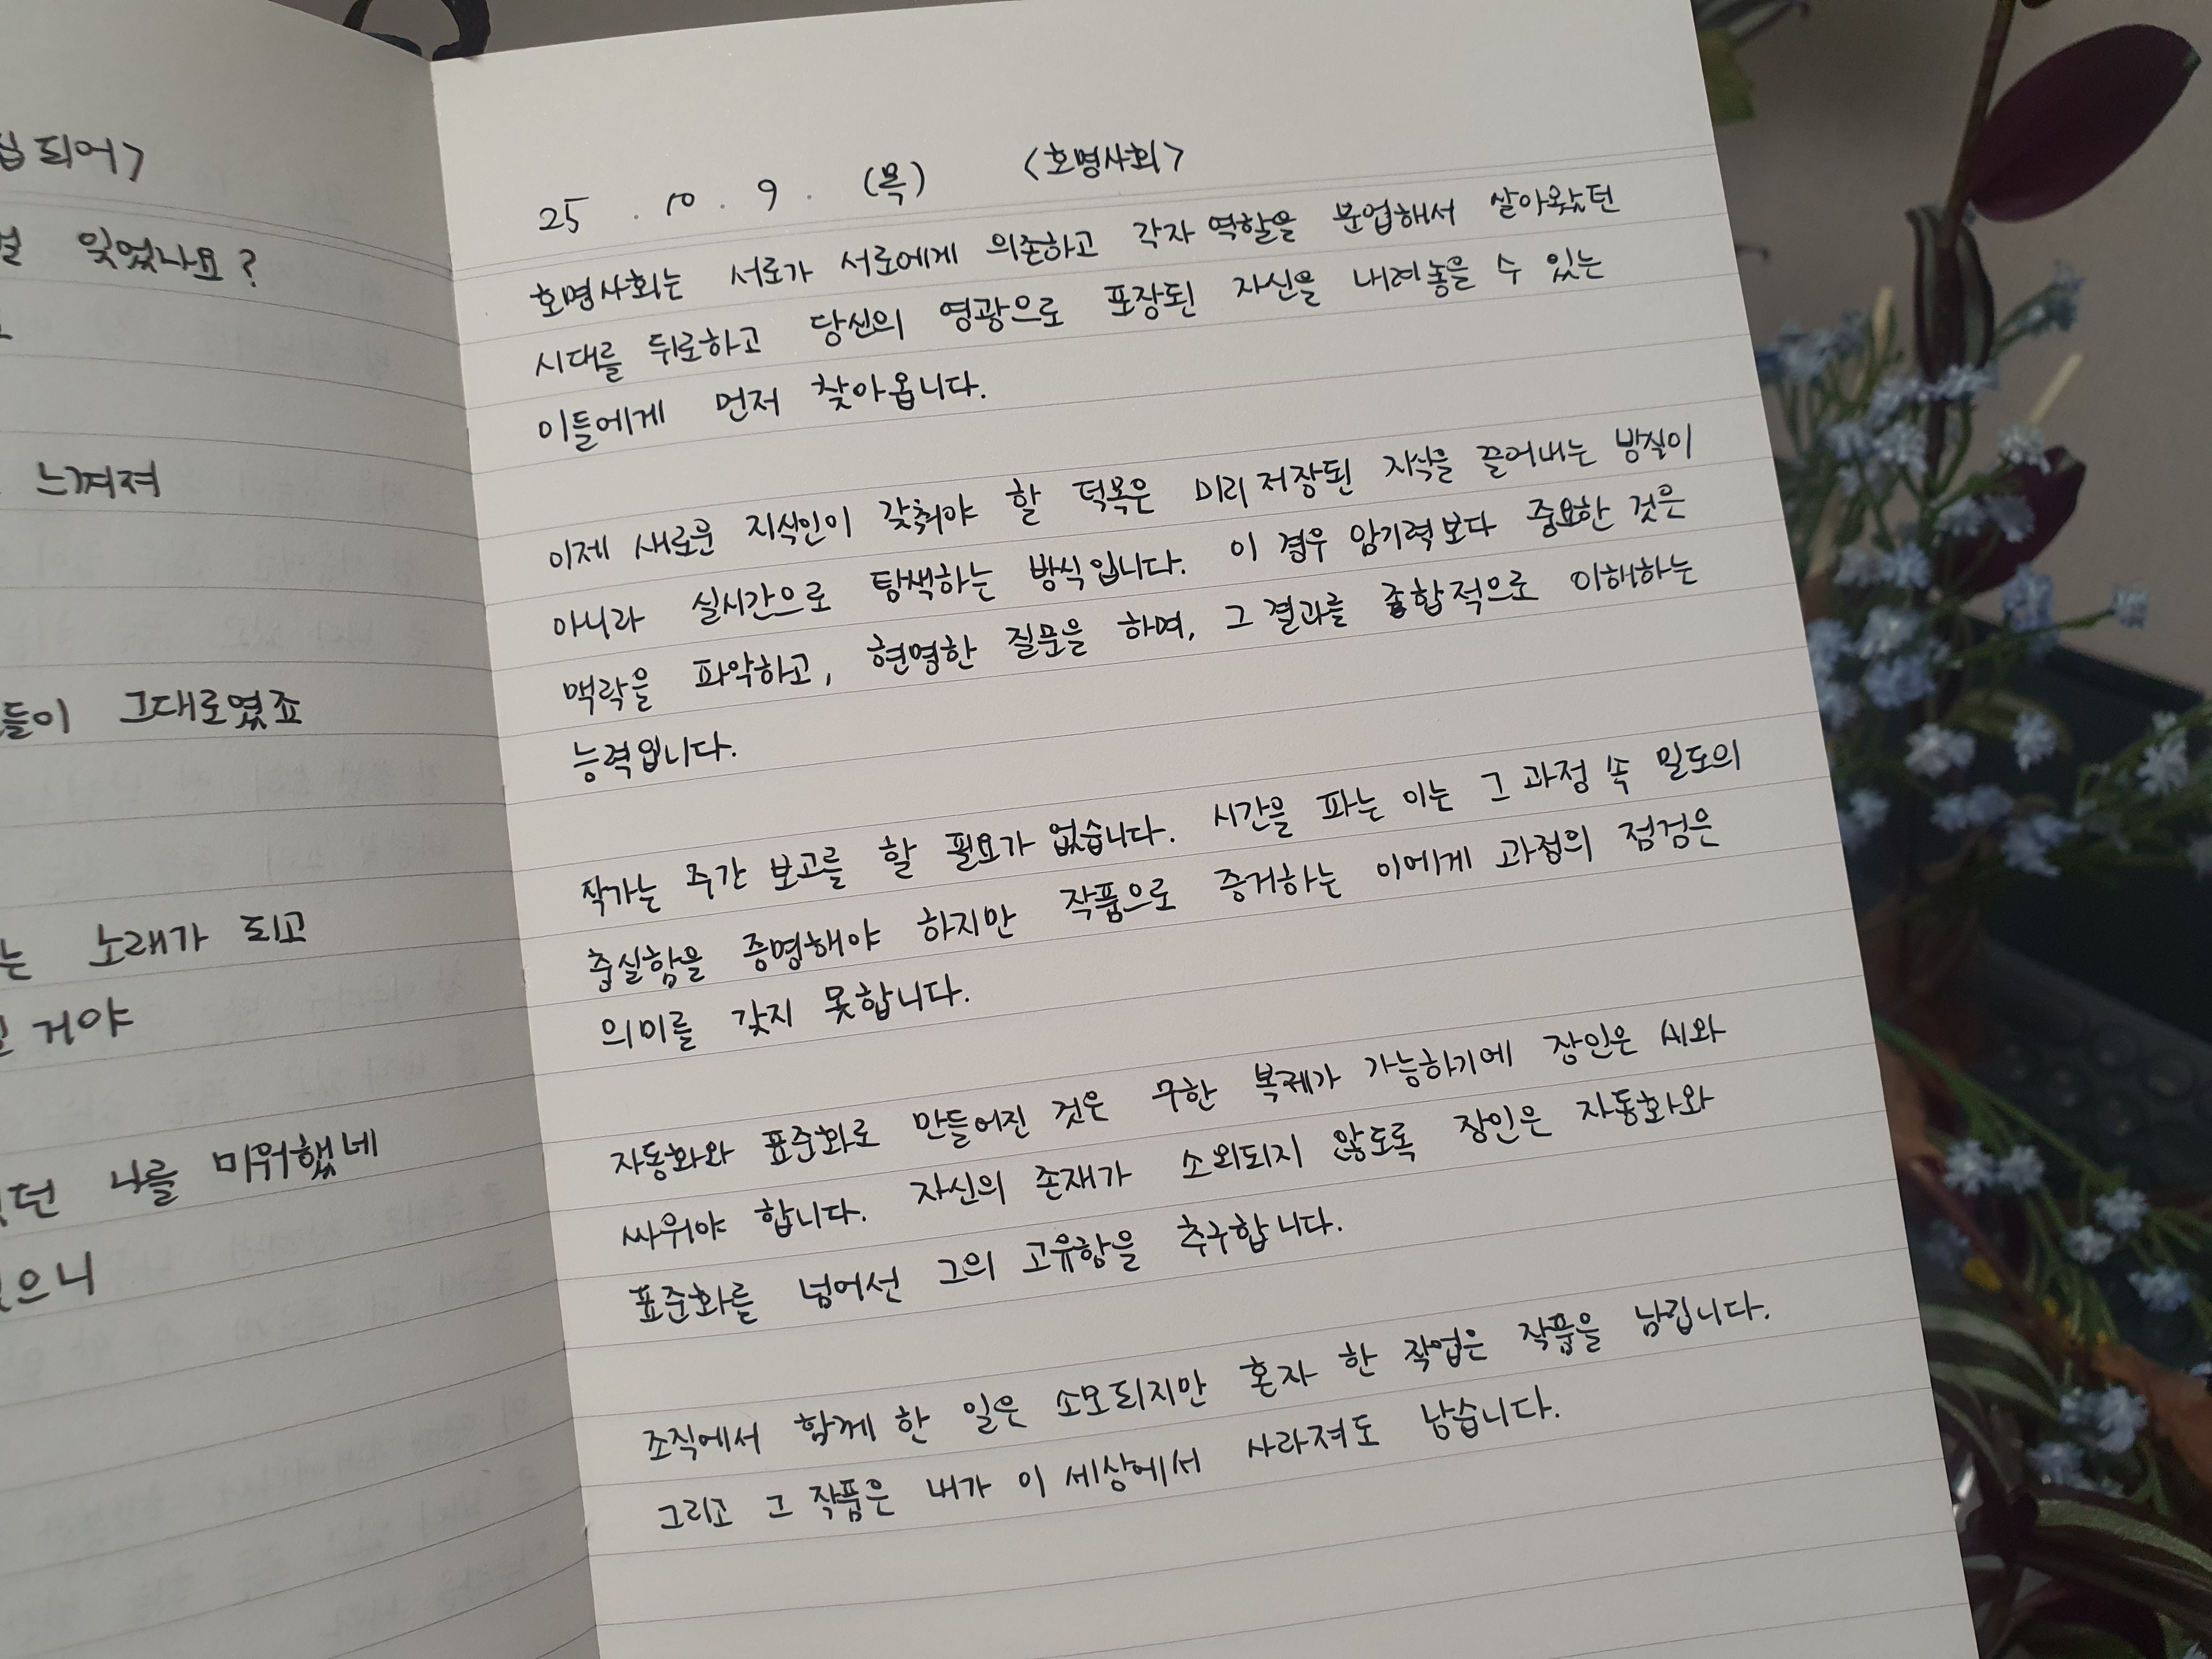 되어>
잊었나요?
느껴져
들이 그대로였죠
는 노래가 되고
거야
던 나를 미워했네
으니
25 . 10 . 9 . (목) <호명사회>
호명사회는 서로가 서로에게 의존하고 각자 역할을 분업해서 살아왔던
시대를 뒤로하고 당신의 영광으로 포장된 자신을 내려놓을 수 있는
이들에게 먼저 찾아옵니다.
이제 새로운 지식인이 갖춰야 할 덕목은 미리 저장된 지식을 끌어내는 방식이
아니라 실시간으로 탐색하는 방식입니다. 이 경우 암기력보다 중요한 것은
맥락을 파악하고, 현명한 질문을 하며, 그 결과를 종합적으로 이해하는
능력입니다.
작가는 주간 보고를 할 필요가 없습니다. 시간을 파는 이는 그 과정 속 밀도의
충실함을 증명해야 하지만 작품으로 증거하는 이에게 과정의 점검은
의미를 갖지 못합니다.
자동화와 표준화로 만들어진 것은 무한 복제가 가능하기에 장인은 씨와
싸워야 합니다. 자신의 존재가 소외되지 않도록 장인은 자동화와
표준화를 넘어선 그의 고유함을 추구합니다.
조직에서 함께 한 일은 소모되지만 혼자 한 작업은 작품을 남깁니다.
그리고 그 작품은 내가 이 세상에서 사라져도 남습니다.